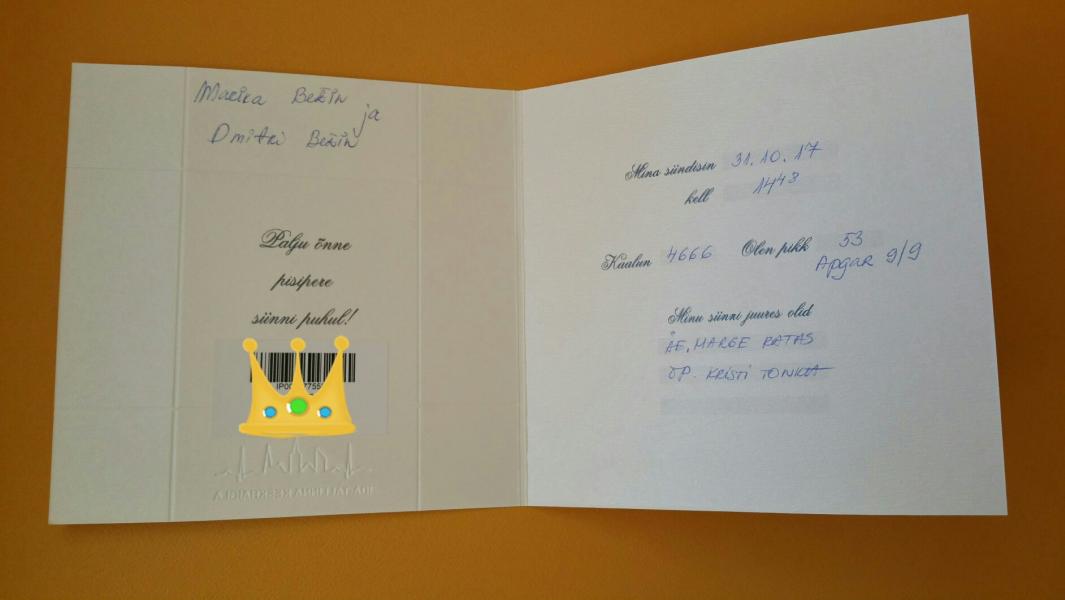 Marika Bežin
ja
Dmitri Bežin
Palju õnne
pisipere
sünni puhul!
Mina sündisin 31.10.17
kell 14 43
Kaalun 4666 Olen pikk 53
Apgar 9/9
Minu sünni juures olid
ÄE, MARGE RATAS
ÕP. KRISTI